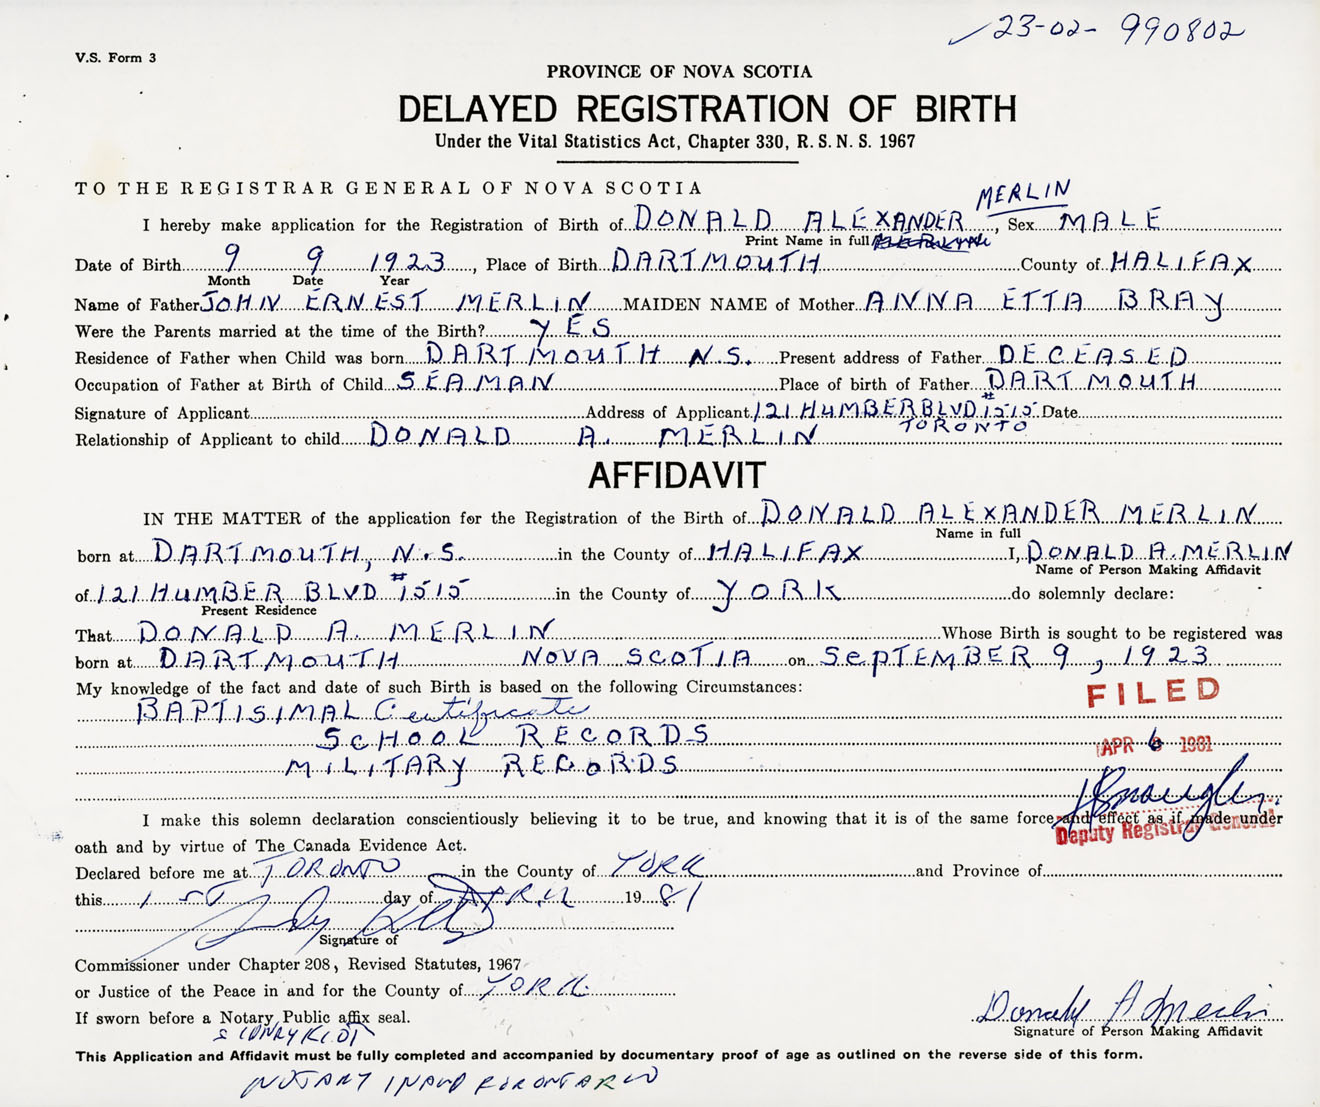 23-02- 990802
V.S. Form 3
PROVINCE OF NOVA SCOTIA
DELAYED REGISTRATION OF BIRTH
Under the Vital Statistics Act, Chapter 330, R. S. N. S. 1967
TO THE REGISTRAR GENERAL OF NOVA SCOTIA
MERLIN
I hereby make application for the Registration of Birth of DONALD ALEXANDER, Sex MALE
Print Name in full
Date of Birth 9 9 1923, Place of Birth DARTMOUTH County of HALIFAX
Month Date Year
Name of Father JOHN ERNEST MERLIN MAIDEN NAME of Mother ANNA ETTA BRAY
Were the Parents married at the time of the Birth? YES
Residence of Father when Child was born DARTMOUTH N.S. Present address of Father DECEASED
Occupation of Father at Birth of Child SEAMAN Place of birth of Father DARTMOUTH
Signature of Applicant Address of Applicant 121 HUMBER BLVD #1515 Date
TORONTO
Relationship of Applicant to child DONALD A. MERLIN
AFFIDAVIT
IN THE MATTER of the application for the Registration of the Birth of DONALD ALEXANDER MERLIN
Name in full
born at DARTMOUTH, N.S. in the County of HALIFAX I, DONALD A. MERLIN
Name of Person Making Affidavit
of 121 HUMBER BLVD #1515 in the County of YORK do solemnly declare:
Present Residence
That DONALD A. MERLIN Whose Birth is sought to be registered was
born at DARTMOUTH NOVA SCOTIA on SEPTEMBER 9, 1923
My knowledge of the fact and date of such Birth is based on the following Circumstances:
FILED
BAPTISIMAL Certificate
SCHOOL RECORDS
APR 6 1981
MILITARY RECORDS
I make this solemn declaration conscientiously believing it to be true, and knowing that it is of the same force and effect as if made under
Deputy Registrar General
oath and by virtue of The Canada Evidence Act.
Declared before me at TORONTO in the County of YORK and Province of
this 1ST day of APRIL 1981
Signature of
Commissioner under Chapter 208, Revised Statutes, 1967
or Justice of the Peace in and for the County of YORK
Donald A Merlin
If sworn before a Notary Public affix seal.
Signature of Person Making Affidavit
This Application and Affidavit must be fully completed and accompanied by documentary proof of age as outlined on the reverse side of this form.
NOTARY IN AND FOR ONTARIO